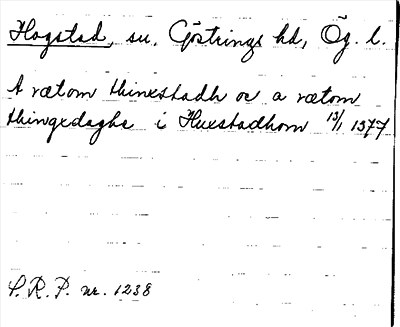 Hogstad, sn, Göstrings hd, Ög. l.
A rætom thinxstadh oc a rætom
thingxdaghe i Huxstadhom 13/1 1377
S.R.P. nr. 1238